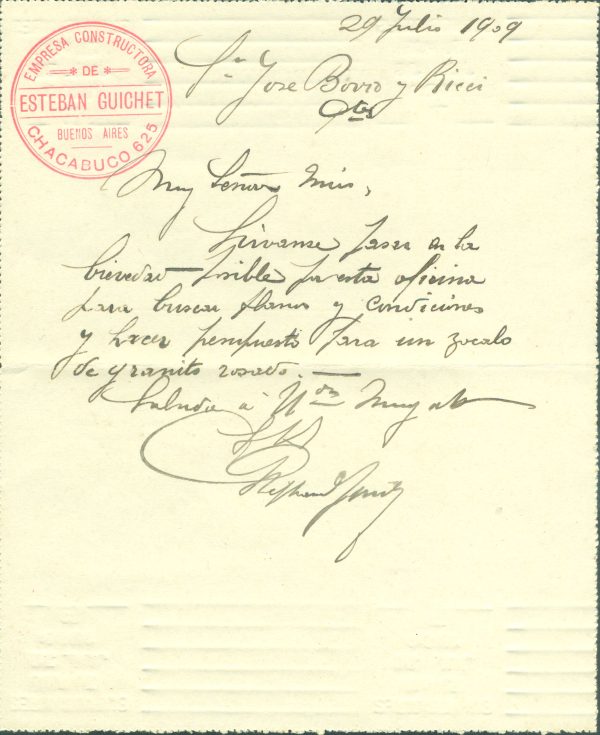 EMPRESA CONSTRUCTORA
DE
ESTEBAN GUICHET
BUENOS AIRES
CHACABUCO 625
29 Julio 1909
Sr. Jose Bovio y Ricci
Muy Señor Mios,
Sirvanse pasar en la
brevedad posible por esta oficina
para buscar planos y condiciones
y hacer presupuesto para un zocalo
de granito rosado. —
Saluda à Uds Muy att